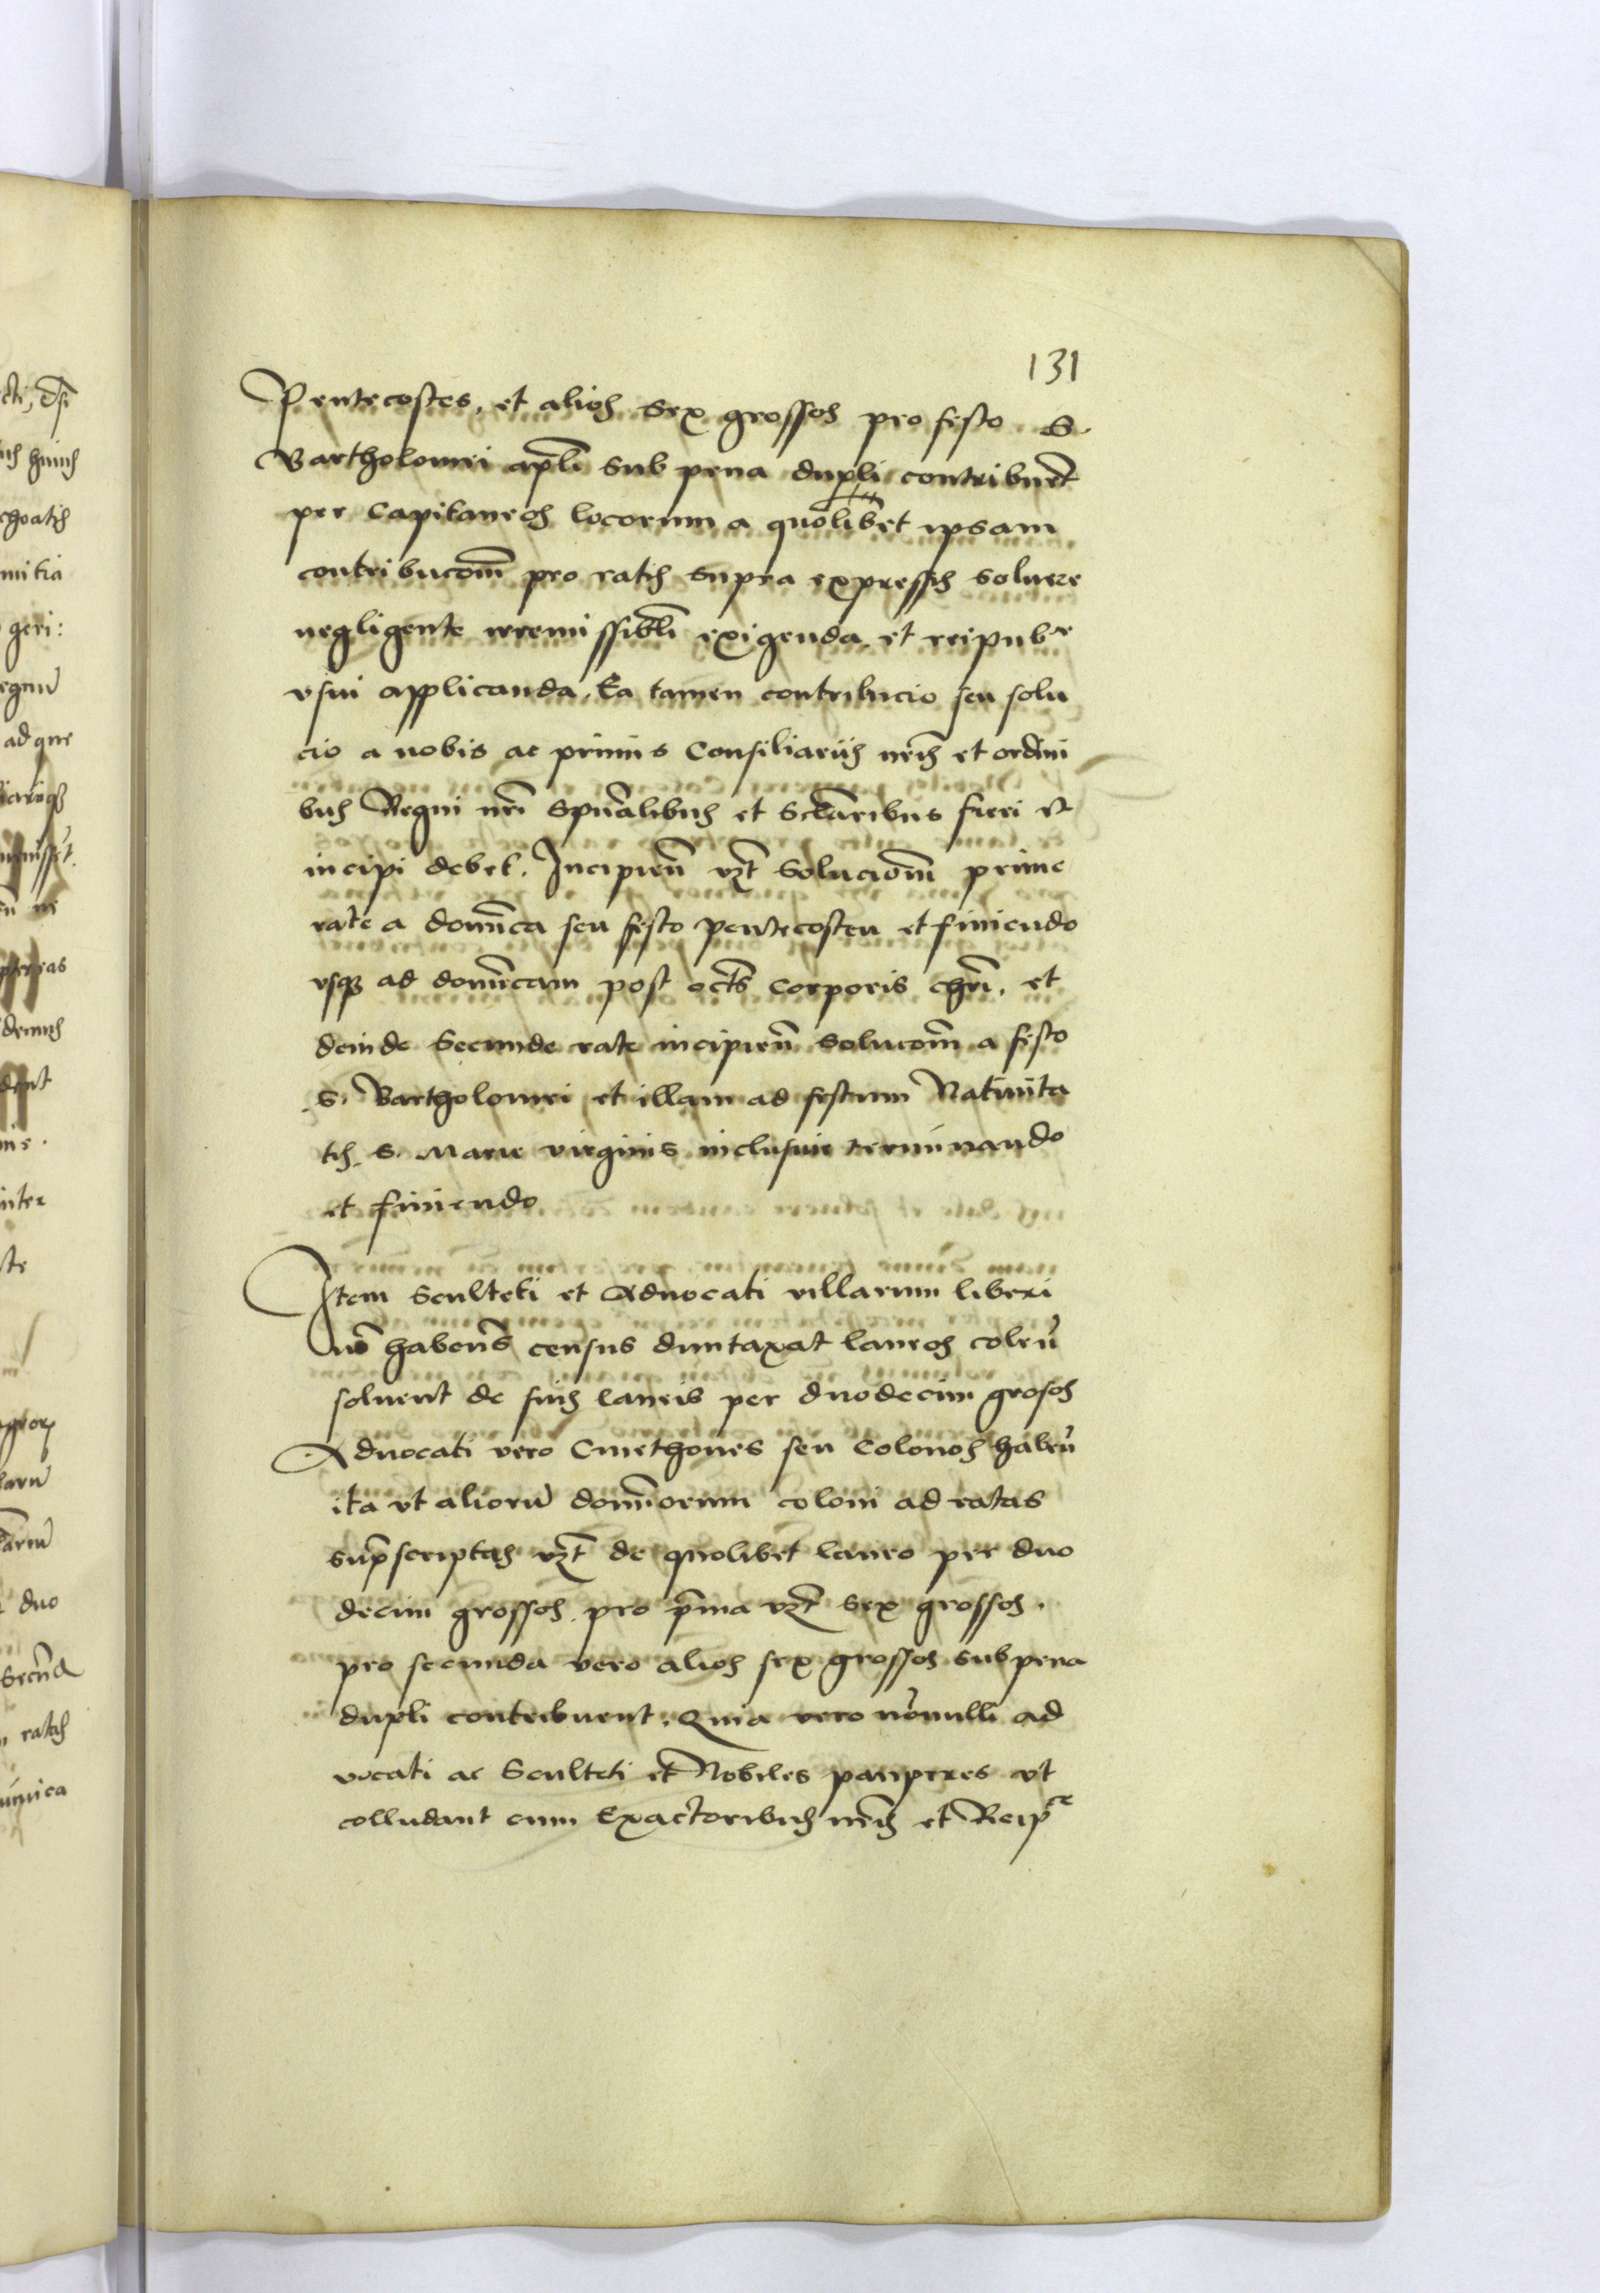 131
Pentecostes. et alios sex grossos pro festo S.
Bartholomei apli sub pena dupli contribuet
per Capitaneos locorum a quolibet ipsam
contribucom pro ratis supra expressis soluere
negligente irremissibli exigenda et reipub^e
vsui applicanda. Ea tamen contribucio seu solu
cio a nobis ac primis Consiliariis nris et ordini
bus Regni nri Spualibus et Sclaribus fieri et
incipi debet. Incipien vzt Solucionm prime
rate a domica seu festo pentecosten et finiendo
vsq ad domicam post octs Corporis chri. et
deinde Secunde rate incipien Solucom a festo
S. Bartholomei et illam ad festum Natiuita
tis S. Marie virginis inclusiue terminando
et finiendo
Item Sculteti et Aduocati villarum liberi
no habens census duntaxat laneos colen
soluent de suis laneis per duodecim grosos
Aduocati vero Cmethones seu Colonos haben
ita vt alioru domorum coloni ad ratas
supscriptas vzt de quolibet laneo per duo
decim grossos. pro pma vzt sex grossos.
pro secunda vero alios sex grossos sub pena
dupli contribuent. Quia vero nonulli ad
uocati ac Sculteti et Nobiles pauperes vt
colludant cum Exactoribus nris et Reip^e